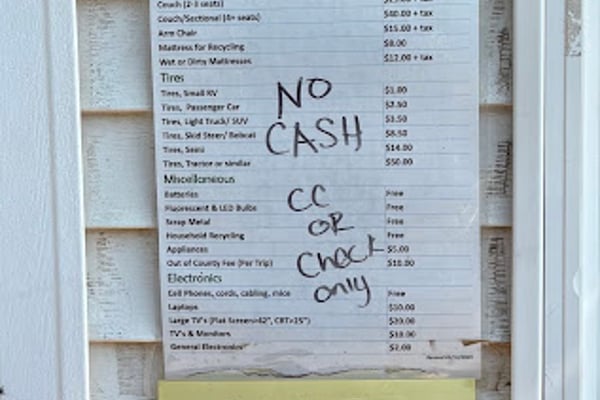 Couch (2-3 seats)
Couch/Sectional (4+ seats) $40.00 + tax
Arm Chair $15.00 + tax
Mattress for Recycling $8.00
Wet or Dirty Mattresses $12.00 + tax
Tires
Tires, Small RV $1.00
Tires, Passenger Car $2.50
Tires, Light Truck/ SUV $3.50
Tires, Skid Steer/ Bobcat $8.50
Tires, Semi $14.00
Tires, Tractor or similar $50.00
Miscellaneous
Batteries Free
Fluorescent & LED Bulbs Free
Scrap Metal Free
Household Recycling Free
Appliances $5.00
Out of County Fee (Per Trip) $10.00
Electronics
Cell Phones, cords, cabling, mice Free
Laptops $10.00
Large TV's (Flat Screen>42", CRT>25") $20.00
TV's & Monitors $10.00
General Electronics $2.00
NO
CASH
CC
OR
Check
only